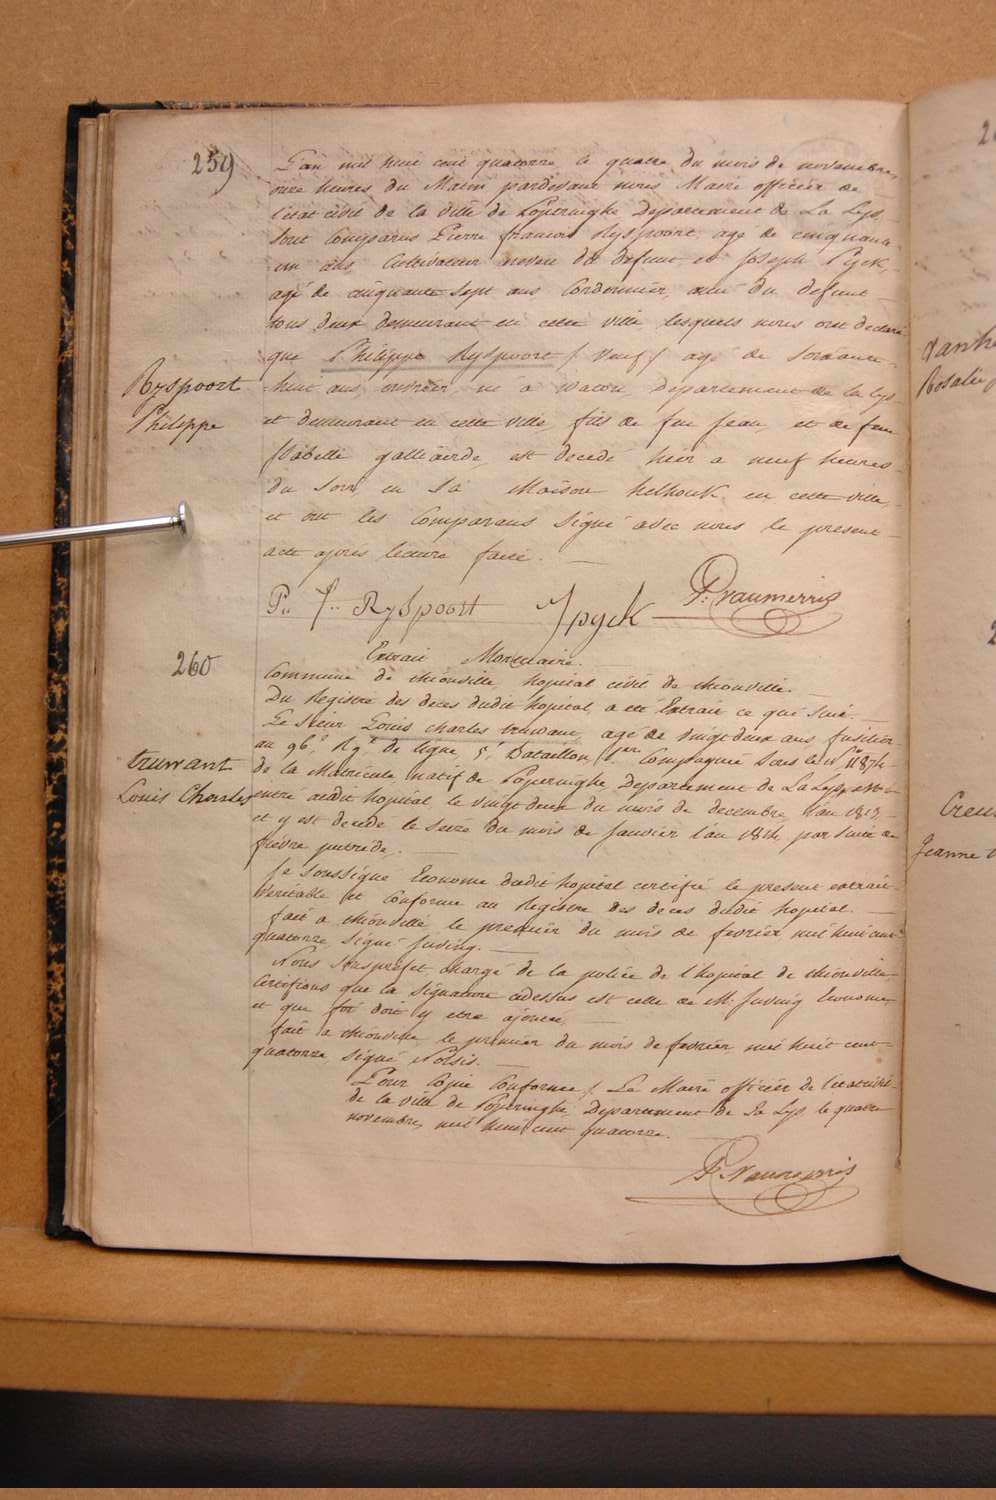 259
L'an mil huit cent quatorze le quatre du mois de novembre,
onze heures du Matin pardevant nous Maire officier de
l'état civil de la ville de Poperinghe Departement de La Lys
sont Comparus Pierre francois Ryspoort, agé de cinquante
un ans Cultivateur neveu du defunt et Joseph Pyck,
agé de cinquante sept ans Cordonnier, du defunt
tous deux demeurant en cette ville lesquels nous ont declaré
que Philippe Ryspoort / veuf / agé de soixante
Ryspoort
Philippe
huit ans, ouvrier, né a Watou, Departement de la Lys
et demeurant en cette ville, fils de feu Jean et de feue
Isabelle est decedé hier a neuf heures
du soir, en sa Maison en cette ville,
et ont les Comparans signé avec nous le present
acte après lecture faite.
P.. f.. Ryspoort Jpyck P. Vanmerris
260
Extrait Mortuaire.
Commune de thionville, hopital civil de thionville.
Du Registre des deces dudit hopital a été Extrait ce qui suit.
Le sieur Louis charles truwant, agé de vingt deux ans fusilier
au 96.e Rg.t de ligne 5.e Bataillon, 1.ere Compagnie sous le N.o 11874
truwant
Louis Charles
de la Matricule natif de Poperinghe, Departement de La Lys, est
entré audit hopital le vingt deux du mois de decembre, l'an 1813,
et y est decedé le seize du mois de Janvier l'an 1814, par suite de
fièvre putride.
Je soussigné Econome dudit hopital certifie le present extrait
veritable et conforme au Registre des deces dudit hopital.
fait a thionville le premier du mois de fevrier mil huit cent
quatorze, signé Juving.
Nous souspréfet chargé de la police de l'hopital de thionville,
Certifions que la signature cidessus est celle de Mr. Juving Econome
et que foi doit y etre ajoutée,
fait a thionville le premier du mois de fevrier, mil huit cent
quatorze, signé
Pour Copie Conforme / Le Maire officier de l'état civil
de la ville de Poperinghe, Departement de La Lys, le quatre
novembre, mil huit cent quatorze.
P. Vanmerris
Rosalie
Jeanne